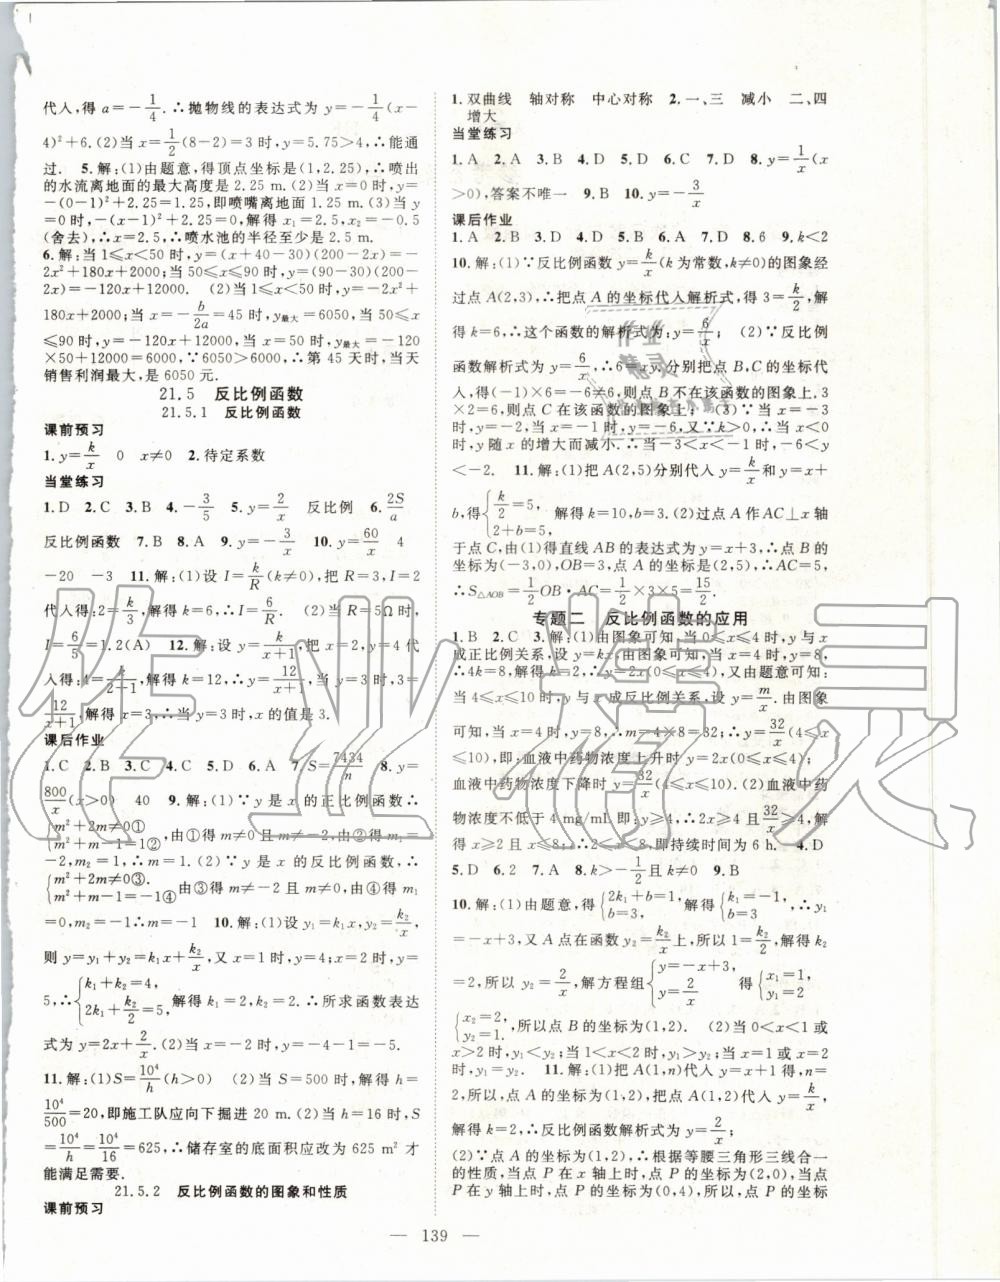 代入,得 a=-1/4.∴抛物线的表达式为 y=-1/4(x-
4)²+6.(2)当 x=1/2(8-2)=3 时,y=5.75>4,∴能通
过. 5.解:(1)由题意,得顶点坐标是(1,2.25),∴喷出
的水流离地面的最大高度是 2.25 m.(2)当 x=0 时,y=
-(0-1)²+2.25=1.25,即喷嘴离地面 1.25 m.(3)当 y
=0 时,-(x-1)²+2.25=0,解得 x₁=2.5,x₂=-0.5
(舍去),∴x=2.5,∴喷水池的半径至少是 2.5 m.
6.解:当 1≤x<50 时,y=(x+40-30)(200-2x)=-
2x²+180x+2000;当 50≤x≤90 时,y=(90-30)(200-
2x)=-120x+12000. (2)当 1≤x<50 时,y=-2x²+
180x+2000,∴当 x=-b/2a=45 时,y最大=6050,当 50≤x
≤90 时,y=-120x+12000,∴当 x=50 时,y最大=-120
×50+12000=6000,∵6050>6000,∴第 45 天时,当天
销售利润最大,是 6050 元.
21.5 反比例函数
21.5.1 反比例函数
课前预习
1.y=k/x 0 x≠0 2.待定系数
当堂练习
1.D 2.C 3.B 4.-3/5 5.y=2/x 反比例 6.2S/a
反比例函数 7.B 8.A 9.y=-3/x 10.y=60/x 4
-20 -3 11.解:(1)设 I=k/R(k≠0),把 R=3,I=2
代入得:2=k/3,解得 k=6,∴I=6/R. (2)当 R=5Ω时,
I=6/5=1.2(A) 12.解:设 y=k/(x+1),把 x=2,y=4 代
入得:4=k/(2+1),解得 k=12,∴y=12/(x+1),当 y=3 时,3=
12/(x+1),解得 x=3,∴当 y=3 时,x 的值是 3.
课后作业
1.C 2.B 3.C 4.C 5.D 6.A 7.S=7434/n 8.y=
800/x(x>0) 40 9.解:(1)∵y 是 x 的正比例函数∴
{m²+2m≠0① m²+m-1=1②,由①得 m≠0 且 m≠-2,由②得 m₁=
-2,m₂=1,∴m=1.(2)∵y 是 x 的反比例函数,∴
{m²+2m≠0③. m²+m-1=-1④由③得 m≠-2 且 m≠0,由④得 m₁
=0,m₂=-1∴m=-1. 10.解:(1)设 y₁=k₁x,y₂=k₂/x.
则 y=y₁+y₂=k₁x+k₂/x,又 x=1 时,y=4;x=2 时,y=
5,∴{k₁+k₂=4, 2k₁+k₂/2=5,解得 k₁=2,k₂=2.∴所求函数表达
式为 y=2x+2/x.(2)当 x=-1 时,y=-4-1=-5.
11.解:(1)S=10⁴/h(h>0) (2)当 S=500 时,解得 h=
10⁴/500=20,即施工队应向下掘进 20 m.(2)当 h=16 时,S
=10⁴/h=10⁴/16=625,∴储存室的底面积应改为 625 m² 才
能满足需要.
21.5.2 反比例函数的图象和性质
课前预习
1.双曲线 轴对称 中心对称 2.一、三 减小 二、四
增大
当堂练习
1.A 2.A 3.B 4.D 5.D 6.C 7.D 8.y=1/x(x
>0),答案不唯一 9.B 10.y=-3/x
课后作业
1.A 2.B 3.D 4.D 5.A 6.A 7.D 8.6 9.k<2
10.解:(1)∵反比例函数 y=k/x(k 为常数,k≠0)的图象经
过点 A(2,3),∴把点 A 的坐标代入解析式,得 3=k/2,解
得 k=6,∴这个函数的解析式为:y=6/x; (2)∵反比例
函数解析式为 y=6/x,∴6=xy.分别把点 B,C 的坐标代
入,得(-1)×6=-6≠6,则点 B 不在该函数的图象上;
3×2=6,则点 C 在该函数的图象上; (3)∵当 x=-3
时,y=-2,当 x=-1 时,y=-6,又∵k>0,∴当 x<0
时,y 随 x 的增大而减小.∴当-3<x<-1 时,-6<y
<-2. 11.解:(1)把 A(2,5)分别代入 y=k/x和 y=x+
b,得{k/2=5, 2+b=5; 解得 k=10,b=3.(2)过点 A 作 AC⊥x 轴
于点 C,由(1)得直线 AB 的表达式为 y=x+3,∴点 B 的
坐标为(-3,0),OB=3,点 A 的坐标是(2,5),∴AC=5,
∴S△AOB=1/2OB·AC=1/2×3×5=15/2.
专题二 反比例函数的应用
1.B 2.C 3.解:(1)由图象可知,当 0≤x≤4 时,y 与 x
成正比例关系,设 y=kx.由图象可知,当 x=4 时,y=8,
∴4k=8,解得 k=2,∴y=2x(0≤x≤4),又由题意可知:
当 4≤x≤10 时,y 与 x 成反比例关系,设 y=m/x.由图象
可知,当 x=4 时,y=8,∴m=4×8=32;∴y=32/x(4≤x
≤10),即:血液中药物浓度上升时 y=2x(0≤x≤4);
血液中药物浓度下降时 y=32/x(4≤x≤10)(2)血液中药
物浓度不低于 4 mg/mL 即:y≥4,∴2x≥4 且32/x≥4,
解得 x≥2 且 x≤8;∴2≤x≤8,即持续时间为 6 h. 4.D
5.D 6.2 7.A 8.k>-1/2且 k≠0 9.B
10.解:(1)由题意,得{2k₁+b=1, b=3,解得{k₁=-1, b=3.∴y₁
=-x+3,又 A 点在函数 y₂=k₂/x上,所以 1=k₂/2,解得 k₂
=2,所以 y₂=2/x,解方程组{y=-x+3, y=2/x 得{x₁=1, y₁=2,
{x₂=2, y₂=1.,所以点 B 的坐标为(1,2). (2)当 0<x<1 或
x>2 时,y₁<y₂;当 1<x<2 时,y₁>y₂;当 x=1 或 x=2
时,y₁=y₂ 11.解:(1)把 A(1,n)代入 y=2x 得,n=
2,所以 A 点坐标为(1,2),把点 A(1,2)代入 y=k/x,得 k
=1×2=2,所以反比例函数解析式为 y=2/x;
(2)∵点 A 的坐标为(1,2),∴根据等腰三角形三线合一
的性质,当点 P 在 x 轴上时,点 P 的坐标为(2,0),当点
P 在 y 轴上时,点 P 的坐标为(0,4),所以,点 P 的坐标
— 139 —
作业精灵
作业
精灵